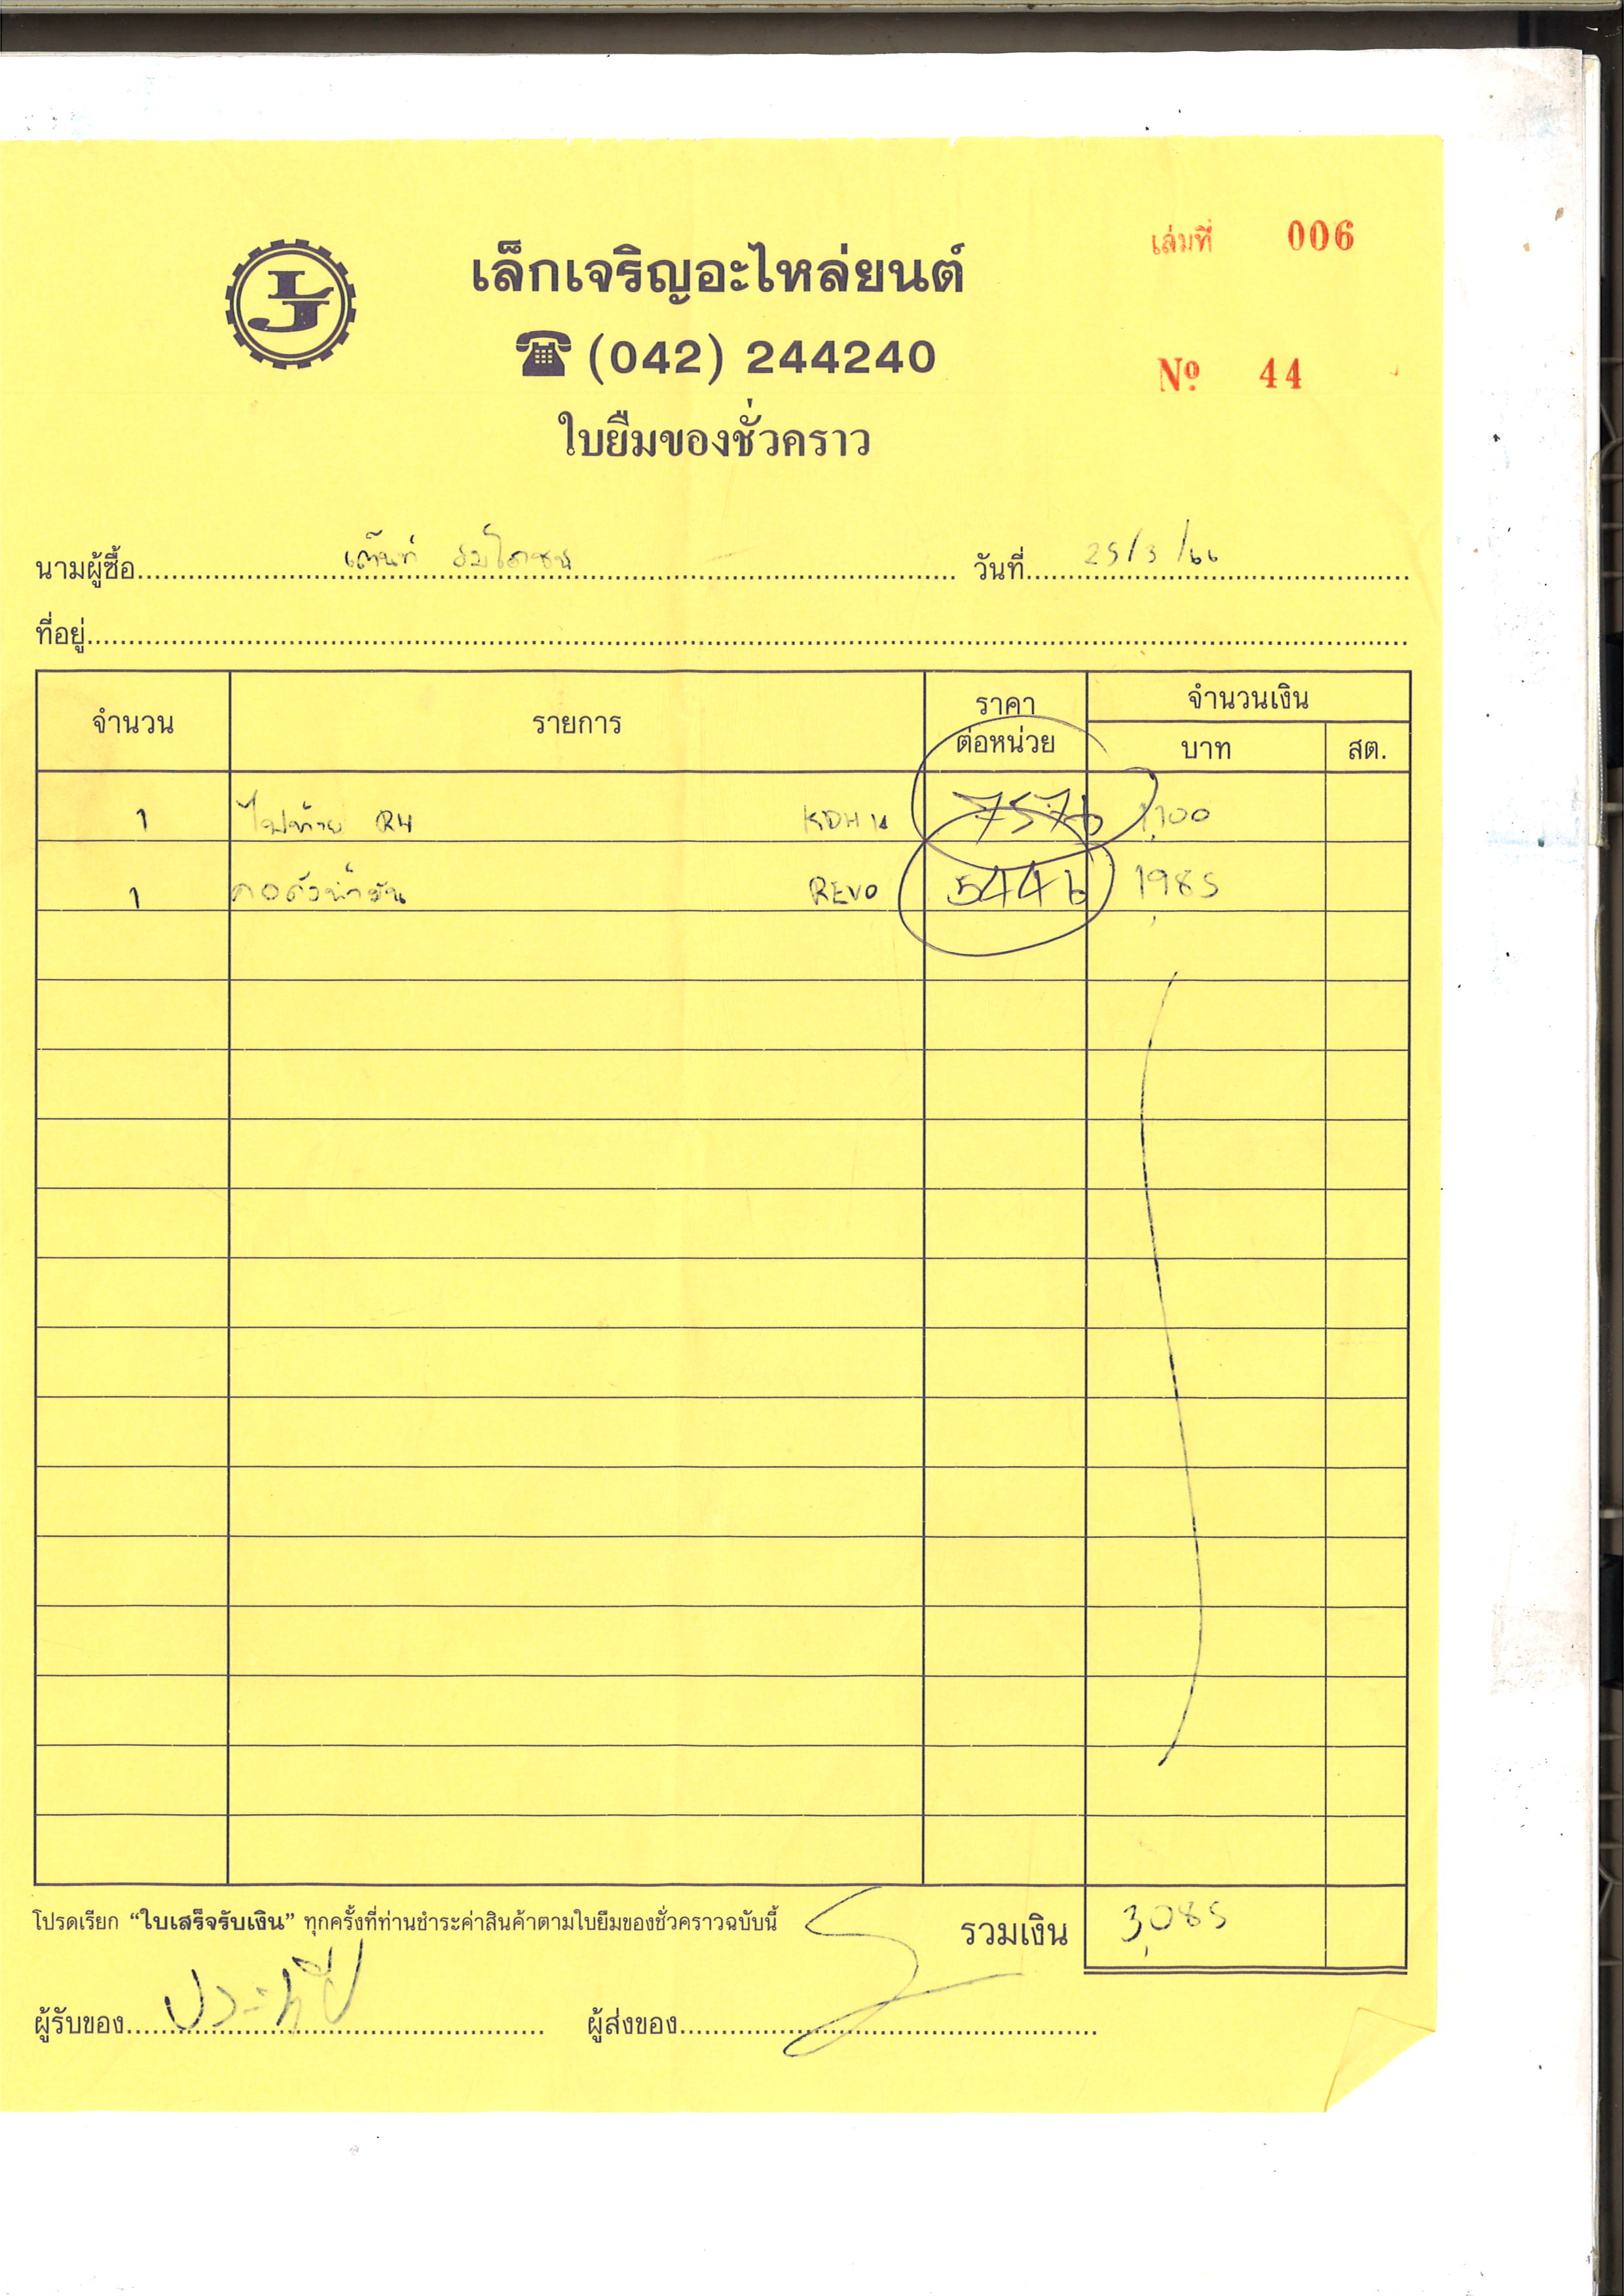 เล่มที่ 006
LJ
เล็กเจริญอะไหล่ยนต์
☎ (042) 244240
Nº 44
ใบยืมของชั่วคราว
นามผู้ซื้อ วันที่ 25/3/66
ที่อยู่
จำนวน รายการ ราคาต่อหน่วย จำนวนเงิน
บาท สต.
1 ไฟท้าย RH KDH 7576 1,100
1 คอถังน้ำมัน REVO 5446 1,985
โปรดเรียก “ใบเสร็จรับเงิน” ทุกครั้งที่ท่านชำระค่าสินค้าตามใบยืมของชั่วคราวฉบับนี้ รวมเงิน 3,085
ผู้รับของ ผู้ส่งของ